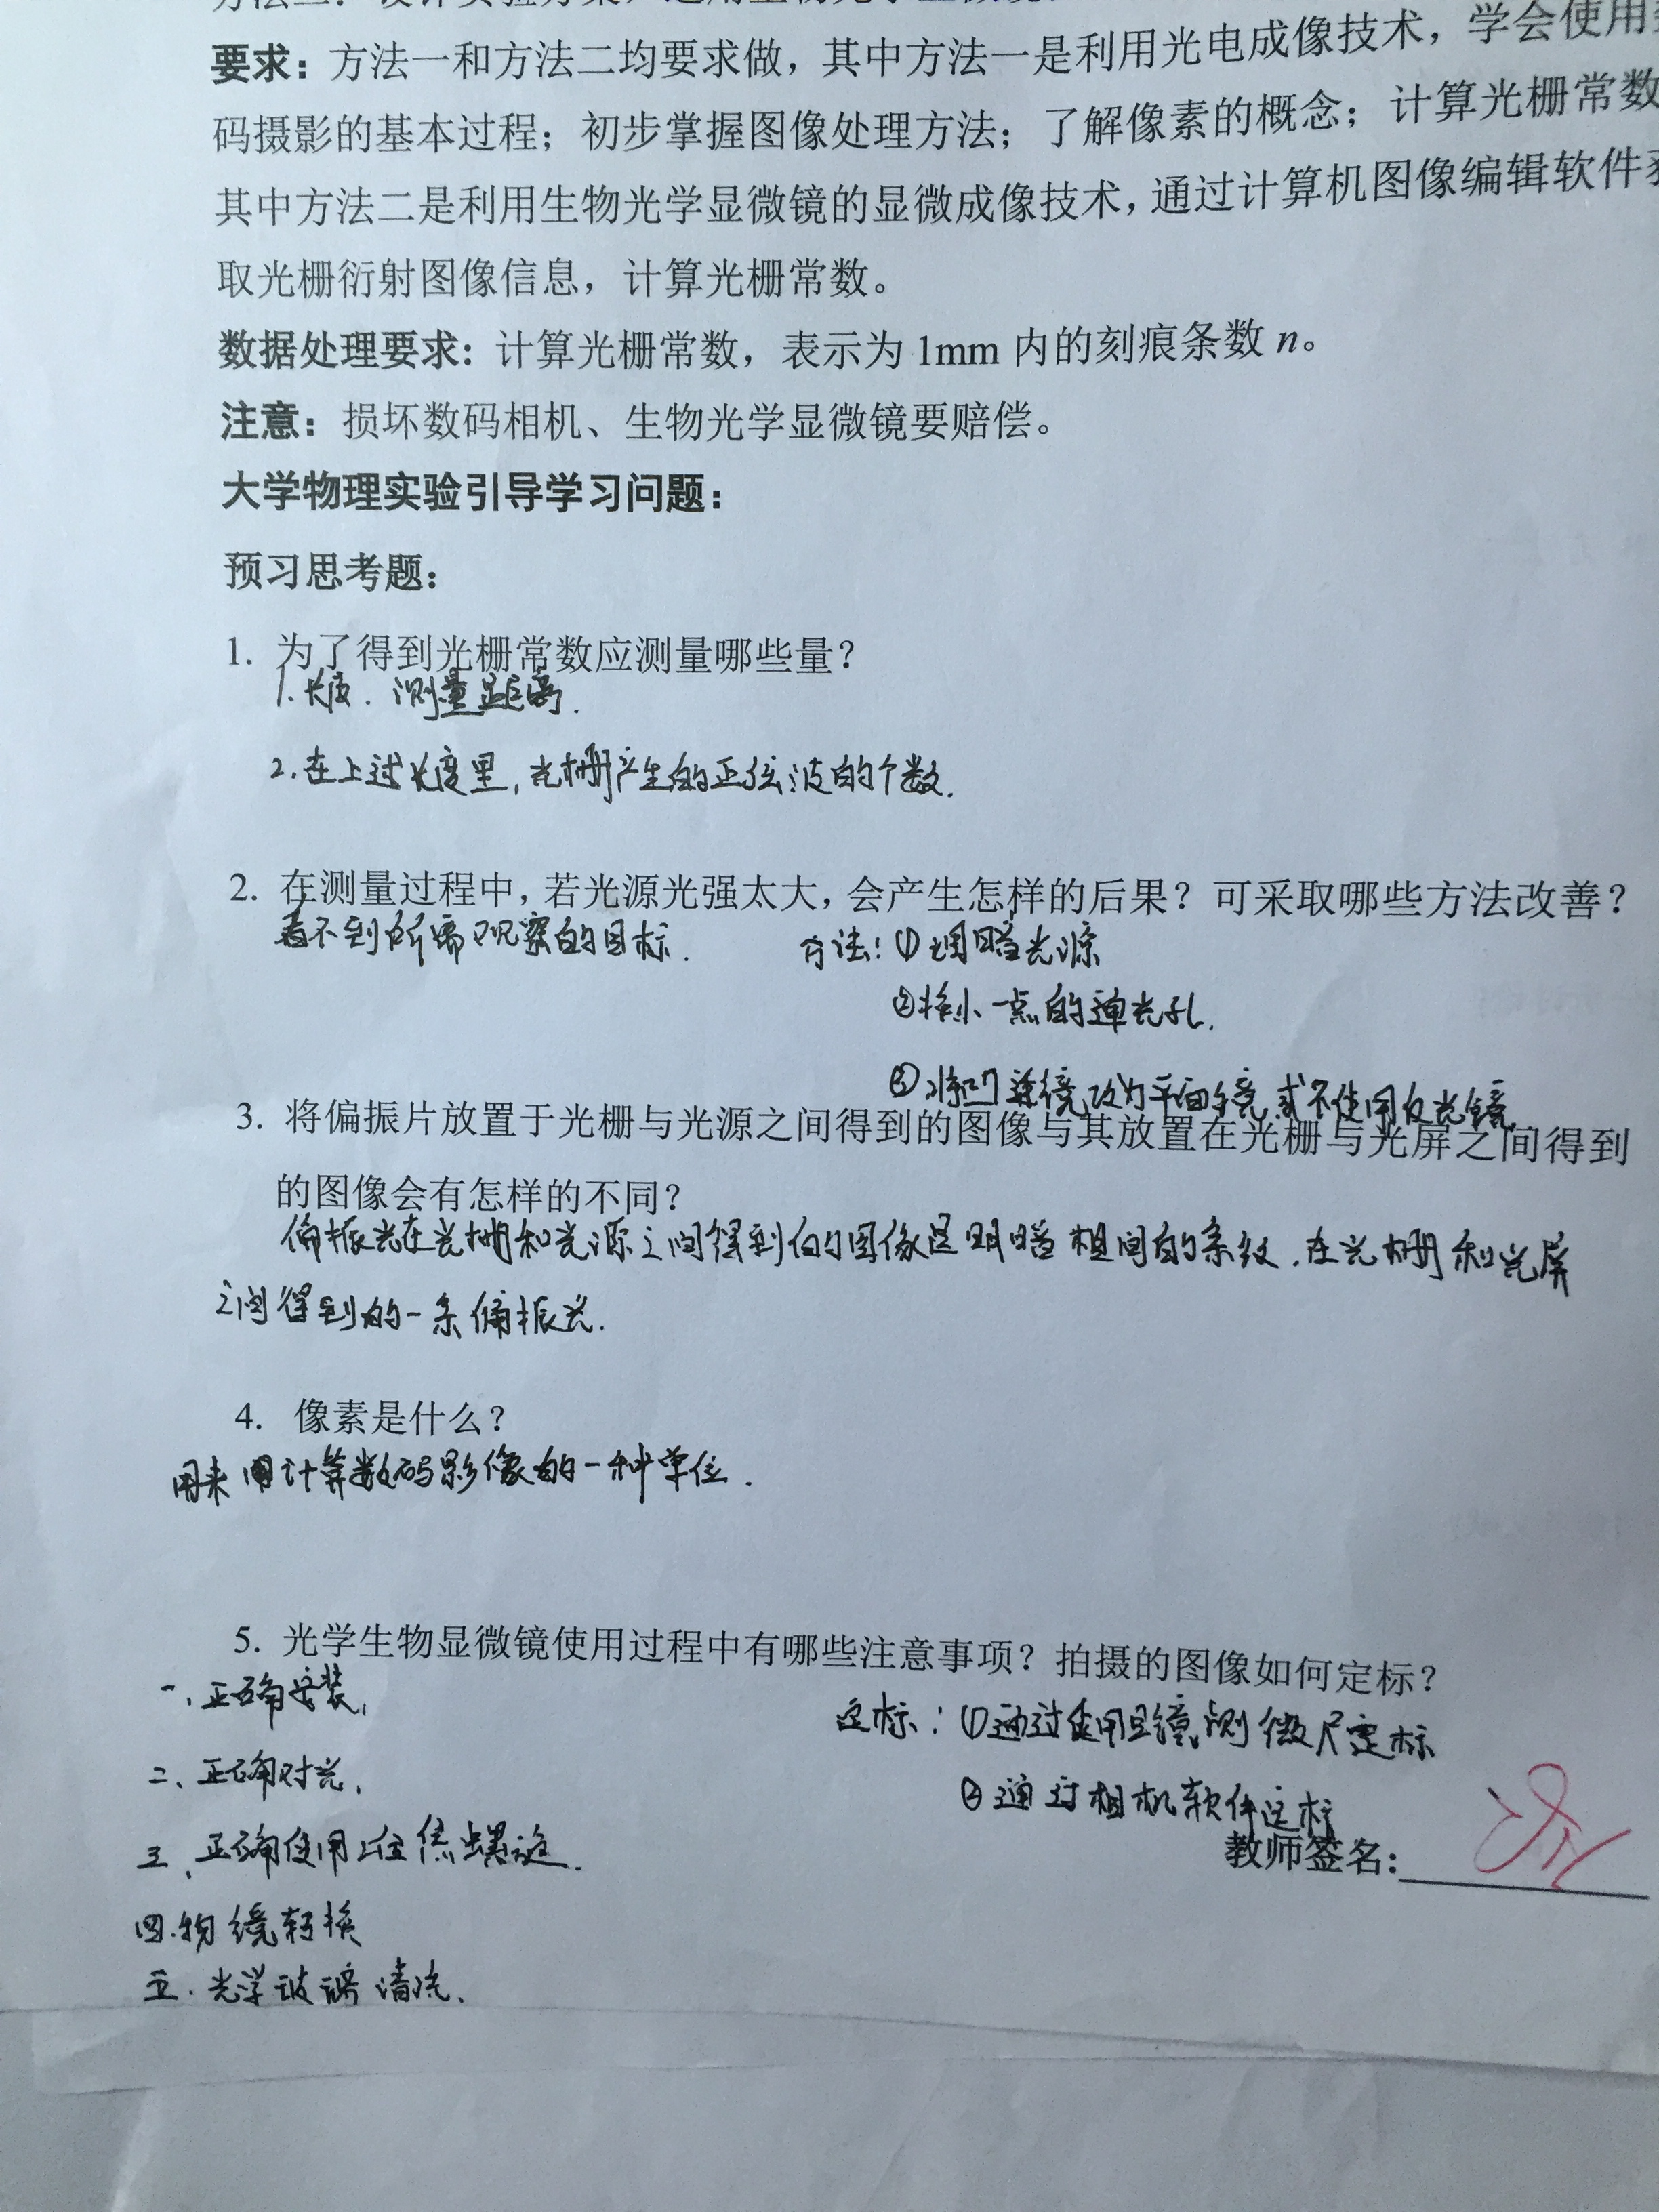 要求：方法一和方法二均要求做，其中方法一是利用光电成像技术，学会使用
码摄影的基本过程；初步掌握图像处理方法；了解像素的概念；计算光栅常数
其中方法二是利用生物光学显微镜的显微成像技术，通过计算机图像编辑软件获
取光栅衍射图像信息，计算光栅常数。
数据处理要求：计算光栅常数，表示为 1mm 内的刻痕条数 n。
注意：损坏数码相机、生物光学显微镜要赔偿。
大学物理实验引导学习问题：
预习思考题：
1. 为了得到光栅常数应测量哪些量？
1.长度．测量距离．
2.在上述长度里，光栅产生的正弦波的个数．
2. 在测量过程中，若光源光强太大，会产生怎样的后果？可采取哪些方法改善？
看不到所需观察的目标． 方法：①调暗光源
②换小一点的通光孔．
③将凹面镜改为平面镜或不使用反光镜
3. 将偏振片放置于光栅与光源之间得到的图像与其放置在光栅与光屏之间得到
的图像会有怎样的不同？
偏振光在光栅和光源之间得到的图像是明暗相间的条纹．在光栅和光屏
之间得到的一条偏振光．
4. 像素是什么？
用来计算数码影像的一种单位．
5. 光学生物显微镜使用过程中有哪些注意事项？拍摄的图像如何定标？
一、正确安装，
定标：①通过使用目镜测微尺定标
二、正确对光，
②通过相机软件定标
三、正确使用准焦螺旋．
教师签名：
四.物镜转换
五．光学玻璃清洗．